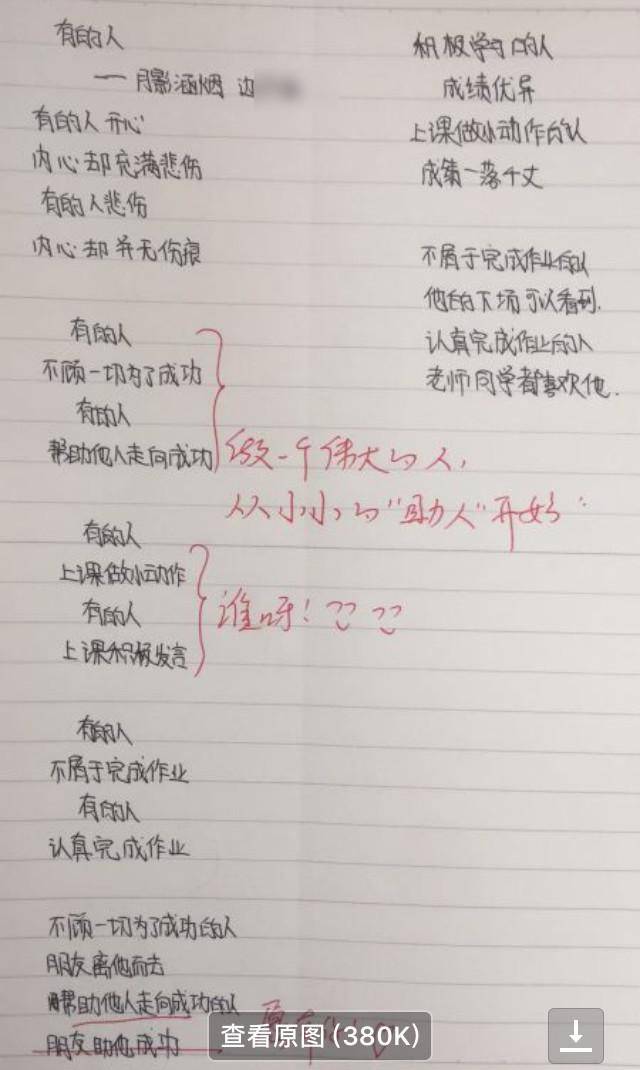 有的人
——月影涵烟 边
有的人开心
内心却充满悲伤
有的人悲伤
内心却并无伤痕
有的人
不顾一切为了成功
有的人
帮助他人走向成功
做一个伟大的人，
从小小的“助人”开始
有的人
上课做小动作
有的人
上课积极发言
谁呀！
有的人
不屑于完成作业
有的人
认真完成作业
不顾一切为了成功的人
朋友离他而去
帮助他人走向成功的人
朋友助他成功
积极学习的人
成绩优异
上课做小动作的人
成绩一落千丈
不屑于完成作业的人
他的下场可以看到.
认真完成作业的人
老师同学都喜欢他.
查看原图 (380K)